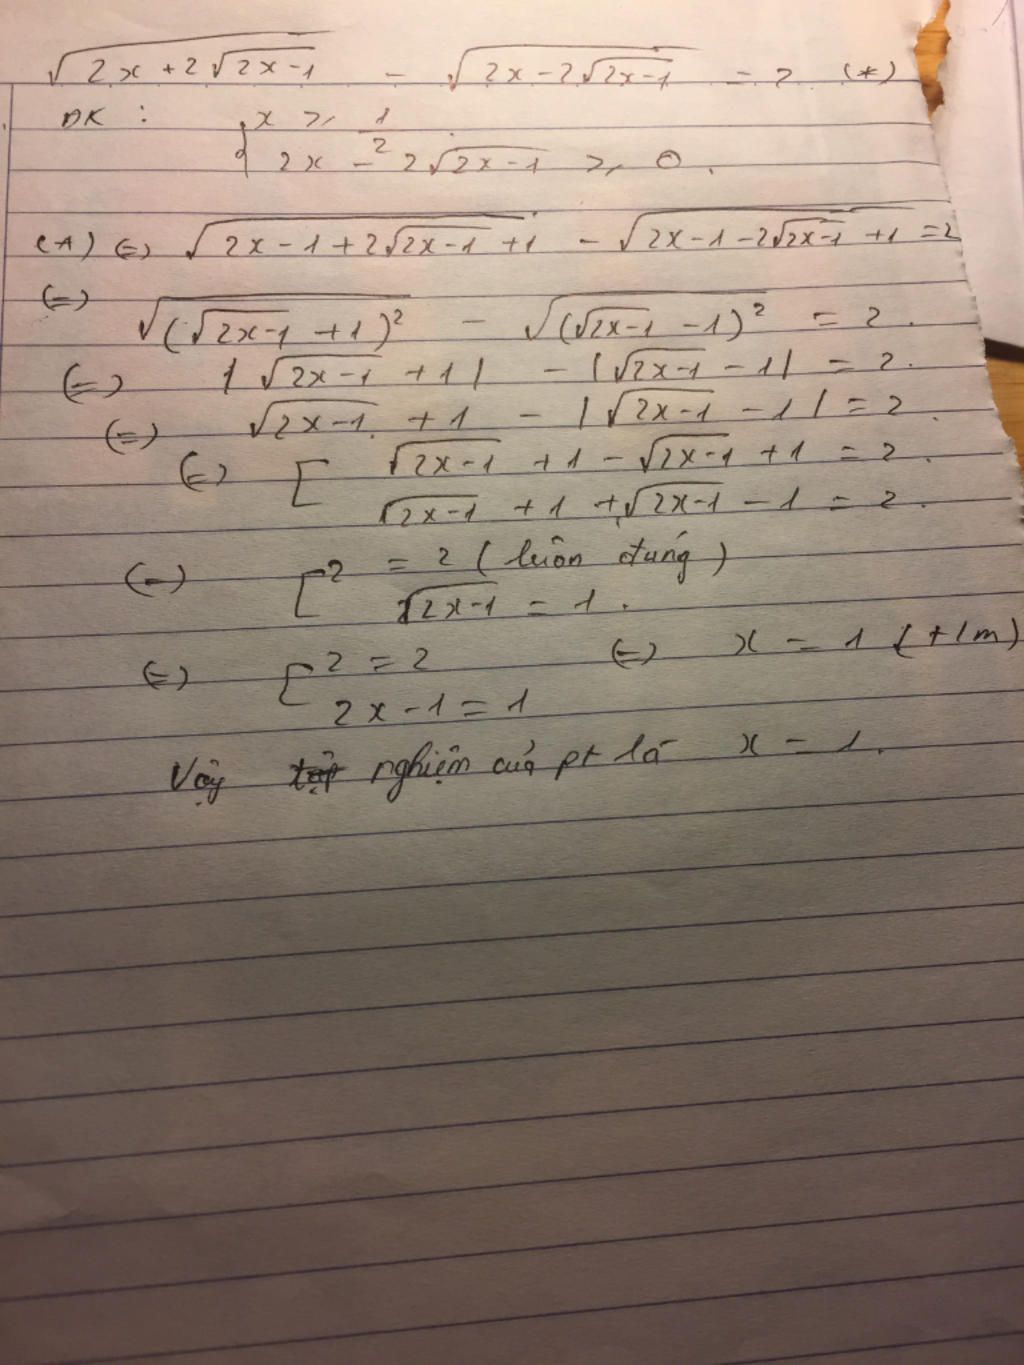 √(2x + 2√(2x-1)) - √(2x - 2√(2x-1)) = 2 (*)
ĐK : { x ≥ 1/2
2x - 2√(2x-1) ≥ 0.
(*) (=) √(2x-1+2√(2x-1)+1) - √(2x-1-2√(2x-1)+1) = 2
(=) √((√(2x-1) + 1)²) - √((√(2x-1) - 1)²) = 2.
(=) |√(2x-1) + 1| - |√(2x-1) - 1| = 2.
(=) √(2x-1) + 1 - |√(2x-1) - 1| = 2.
(=) [ √(2x-1) + 1 - √(2x-1) + 1 = 2.
√(2x-1) + 1 + √(2x-1) - 1 = 2.
(=) [ 2 = 2 (luôn đúng)
√(2x-1) = 1.
(=) [ 2 = 2 (=) x = 1 (t/m)
2x - 1 = 1
Vậy nghiệm của pt là x = 1.